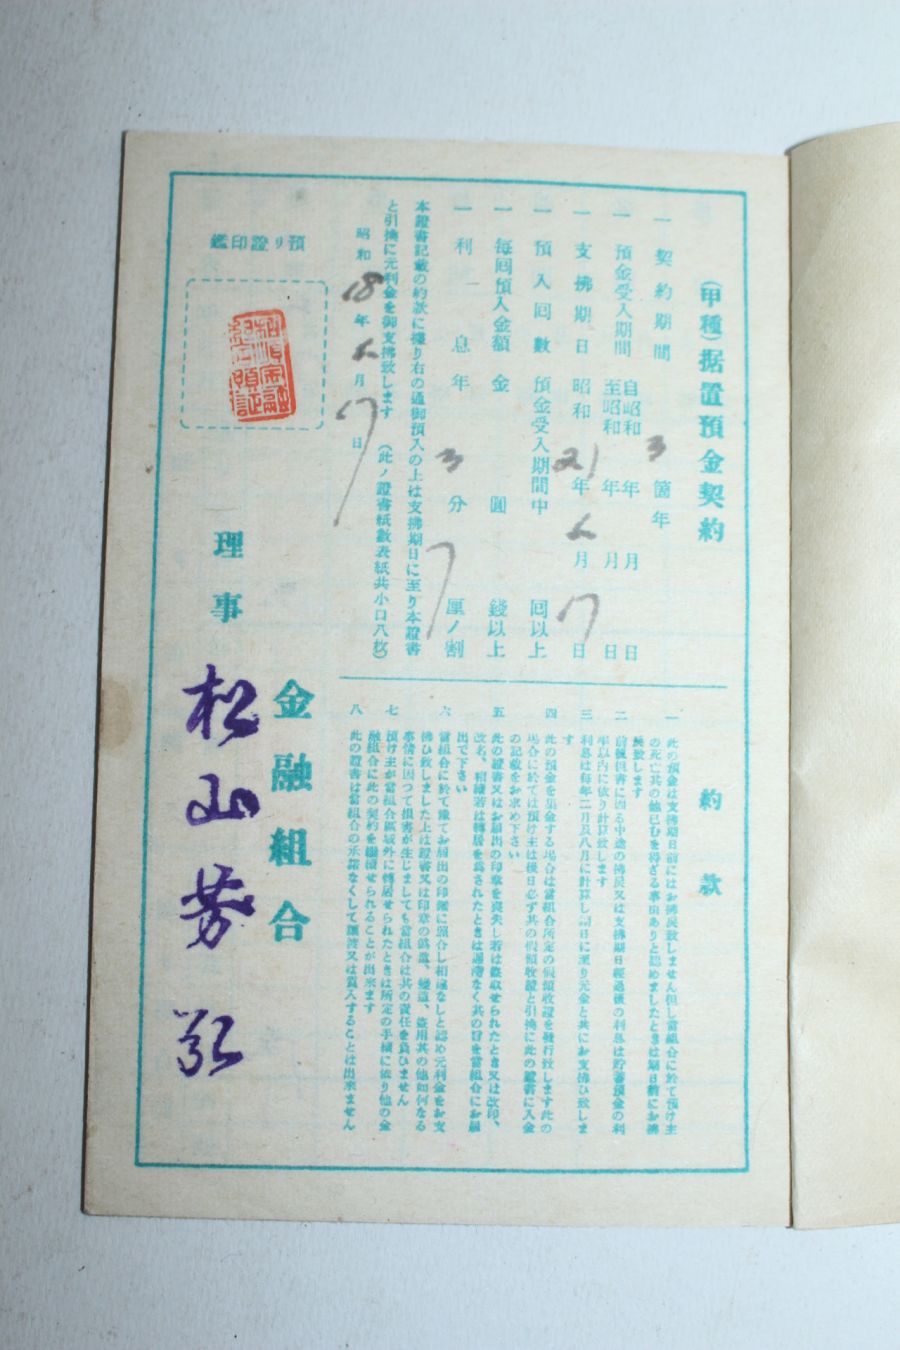 (甲種)据置預金契約
一 契約期間 3 箇年
一 預金受入期間 自昭和 年 月 日
至昭和 年 月 日
一 支拂期日 昭和 21 年 6 月 17 日
一 預入回數 預金受入期間中 回以上
一 毎回預入金額 金 圓 錢以上
一 利息 年 3 分 厘ノ割
本證書記載の約款に據り右の通御預入の上は支拂期日に至り本證書
と引換に元利金を御支拂致します (此ノ證書紙數表紙共小口八枚)
昭和 18 年 6 月 17 日
預り證印鑑
金融組合
理事 松山芳弘
約款
一 此の預金は支拂期日前にはお拂戾致しません但し當組合に於て預け主
の死亡其の他已むを得ざる事由ありと認めましたときは期日前にお拂
戾致します
二 前號但書に因る中途の拂戾又は支拂期日經過後の利息は貯蓄預金の利
率以內に依り計算致します
三 利息は每年二月及八月に計算し期日に至り元金と共にお支拂ひ致しま
す
四 此の預金を集金する場合は當組合所定の假領收證を發行致します此の
場合に於ては預け主は後日必ず其の假領收證と引換に此の證書に入金
の記載をお求め下さい
五 此の證書又はお屆出の印章を喪失し若は盜取せられたとき又は改印、
改名、相續若は轉居を爲されたときは遲滯なく其の旨を當組合にお屆
出で下さい
六 當組合に於て豫てお屆出の印鑑に照合し相違なしと認め元利金をお支
拂ひ致しました上は證書又は印章の僞造、變造、盜用其の他如何なる
事情に因つて損害が生じましても當組合は其の責任を負ひません
七 預け主が當組合區域外に轉居せられたときは所定の手續に依り他の金
融組合に此の契約を繼續せられることが出來ます
八 此の證書は當組合の承諾なくして讓渡又は質入することは出來ません